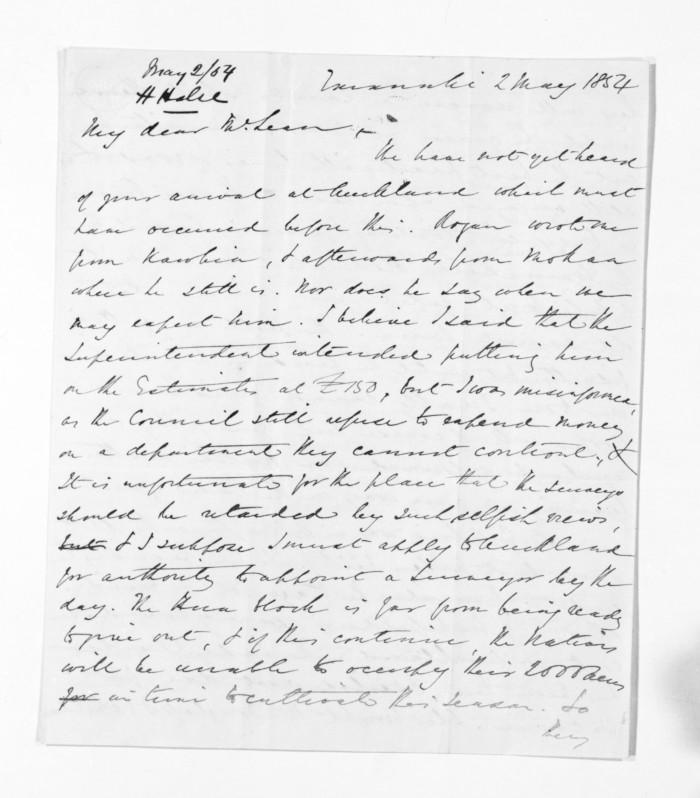 May 2/54
H Halse
Taranaki 2 May 1854
My dear McLean,
We have not yet heard
of your arrival at Auckland which must
have occurred before this. Rogan wrote me
from Kawhia, & afterwards from Mokau
where he still is. Nor does he say when we
may expect him. I believe I said that the
Superintendent intended putting him
on the Estimates at £150, but I was misinformed,
as the Council still refuse to expend money
on a department they cannot control, &
it is unfortunate for the place that the surveys
should be retarded by such selfish views,
but & I suppose I must apply to Auckland
for authority to appoint a Surveyor by the
day. The Hua Block is far from being ready
to give out, & if this continue, the Natives
will be unable to occupy their 2000 acres
for in time to cultivate this season. So